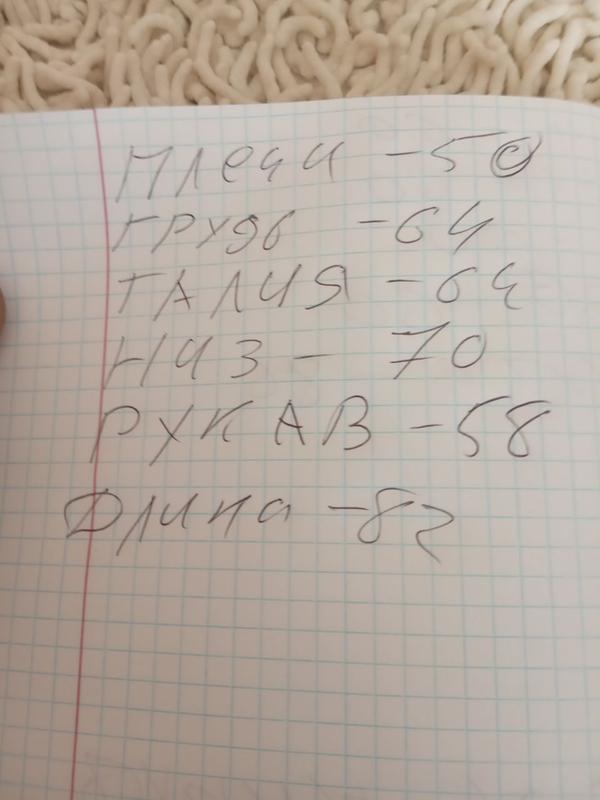 Плечи - 50
ГРУДЬ - 64
ТАЛИЯ - 64
НИЗ - 70
РУКАВ - 58
Длина - 82